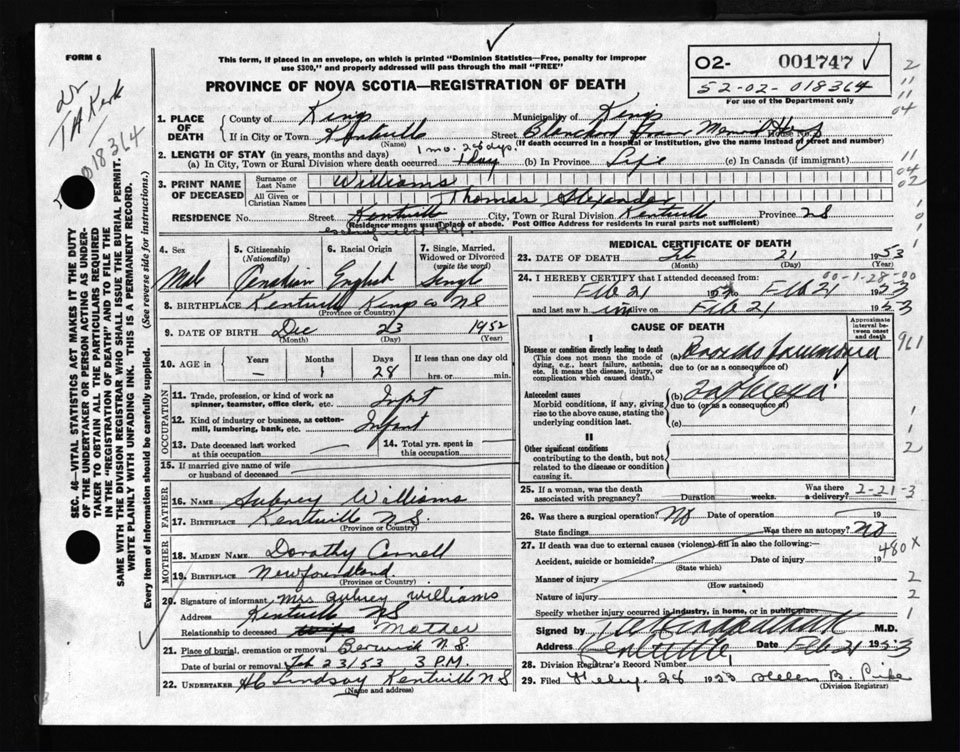 FORM 6
This form, if placed in an envelope, on which is printed "Dominion Statistics—Free, penalty for improper
use $300," and properly addressed will pass through the mail "FREE"
PROVINCE OF NOVA SCOTIA—REGISTRATION OF DEATH
02- 001747
52-02-018364
For use of the Department only
018364
1. PLACE OF DEATH
County of Kings Municipality of Kings
If in City or Town Kentville Street Blanchard House No.
(Name) (If death occurred in a hospital or institution, give the name instead of street and number)
1 mo. 28 dys.
2. LENGTH OF STAY (in years, months and days)
(a) In City, Town or Rural Division where death occurred 1 day (b) In Province Life (c) In Canada (if immigrant)
3. PRINT NAME OF DECEASED
Surname or Last Name Williams
All Given or Christian Names Thomas Alexander
RESIDENCE No. Street Kentville City, Town or Rural Division Kentville Province NS
(Residence means usual place of abode. Post Office Address for residents in rural parts not sufficient)
4. Sex Male
5. Citizenship (Nationality) Canadian
6. Racial Origin English
7. Single, Married, Widowed or Divorced (write the word) Single
8. BIRTHPLACE Kentville Kings Co NS
(Province or Country)
9. DATE OF BIRTH Dec 23 1952
(Month) (Day) (Year)
10. AGE in Years — Months 1 Days 28 If less than one day old hrs. or min.
OCCUPATION
11. Trade, profession, or kind of work as spinner, teamster, office clerk, etc. Infant
12. Kind of industry or business, as cotton-mill, lumbering, bank, etc. Infant
13. Date deceased last worked at this occupation
14. Total yrs. spent in this occupation
15. If married give name of wife or husband of deceased
FATHER
16. NAME Aubrey Williams
17. BIRTHPLACE Kentville N.S.
(Province or Country)
MOTHER
18. MAIDEN NAME Dorothy
19. BIRTHPLACE Newfoundland
(Province or Country)
20. Signature of informant Mrs Aubrey Williams
Address Kentville NS
Relationship to deceased Mother
21. Place of burial, cremation or removal Berwick N.S.
Date of burial or removal Feb 23/53 3 P.M.
22. UNDERTAKER HC Lindsay Kentville NS
(Name and address)
MEDICAL CERTIFICATE OF DEATH
23. DATE OF DEATH Feb 21 1953
(Month) (Day)
00-1-28-00
24. I HEREBY CERTIFY that I attended deceased from:
Feb 21 1953 to Feb 21 1953
and last saw him alive on Feb 21 1953
CAUSE OF DEATH
Approximate interval between onset and death
I
Disease or condition directly leading to death
(This does not mean the mode of dying, e.g., heart failure, asthenia, etc. It means the disease, injury, or complication which caused death.
(a) Broncho pneumonia
due to (or as a consequence of)
Antecedent causes
Morbid conditions, if any, giving rise to the above cause, stating the underlying condition last.
(b)
due to (or as a consequence of)
(c)
II
Other significant conditions
contributing to the death, but not related to the disease or condition causing it.
25. If a woman, was the death associated with pregnancy? Duration weeks. Was there a delivery? 2-21-3
26. Was there a surgical operation? No Date of operation 19
State findings Was there an autopsy? No
480 x
27. If death was due to external causes (violence) fill in also the following:—
Accident, suicide or homicide? Date of injury 19
(State which)
Manner of injury
(How sustained)
Nature of injury
Specify whether injury occurred in industry, in home, or in public place
Signed by M.D.
Address Kentville Date Feb 21 1953
28. Division Registrar's Record Number 1
29. Filed Feby. 28 1953 Helen B.
(Division Registrar)
SEC. 46—VITAL STATISTICS ACT MAKES IT THE DUTY
OF THE UNDERTAKER OR PERSON ACTING AS UNDER-
TAKER TO OBTAIN ALL THE PARTICULARS REQUIRED
IN THE "REGISTRATION OF DEATH" AND TO FILE THE
SAME WITH THE DIVISION REGISTRAR WHO SHALL ISSUE THE BURIAL PERMIT.
WRITE PLAINLY WITH UNFADING INK. THIS IS A PERMANENT RECORD.
Every item of Information should be carefully supplied. (See reverse side for instructions.)